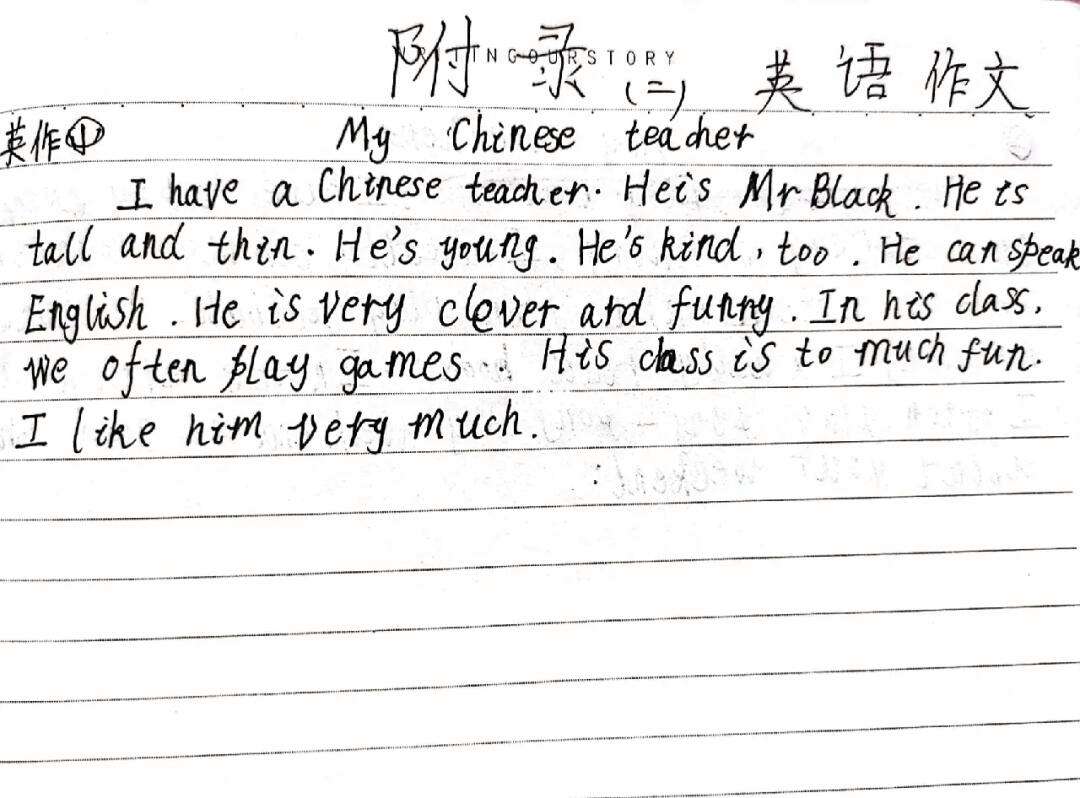 附录(二) 英语作文
NGOURSTORY
英作①
My Chinese teacher
I have a Chinese teacher. Heis Mr Black. He is
tall and thin. He's young. He's kind, too. He can speak
English. He is very clever and funny. In his class,
we often play games. His class is to much fun.
I like him very much.